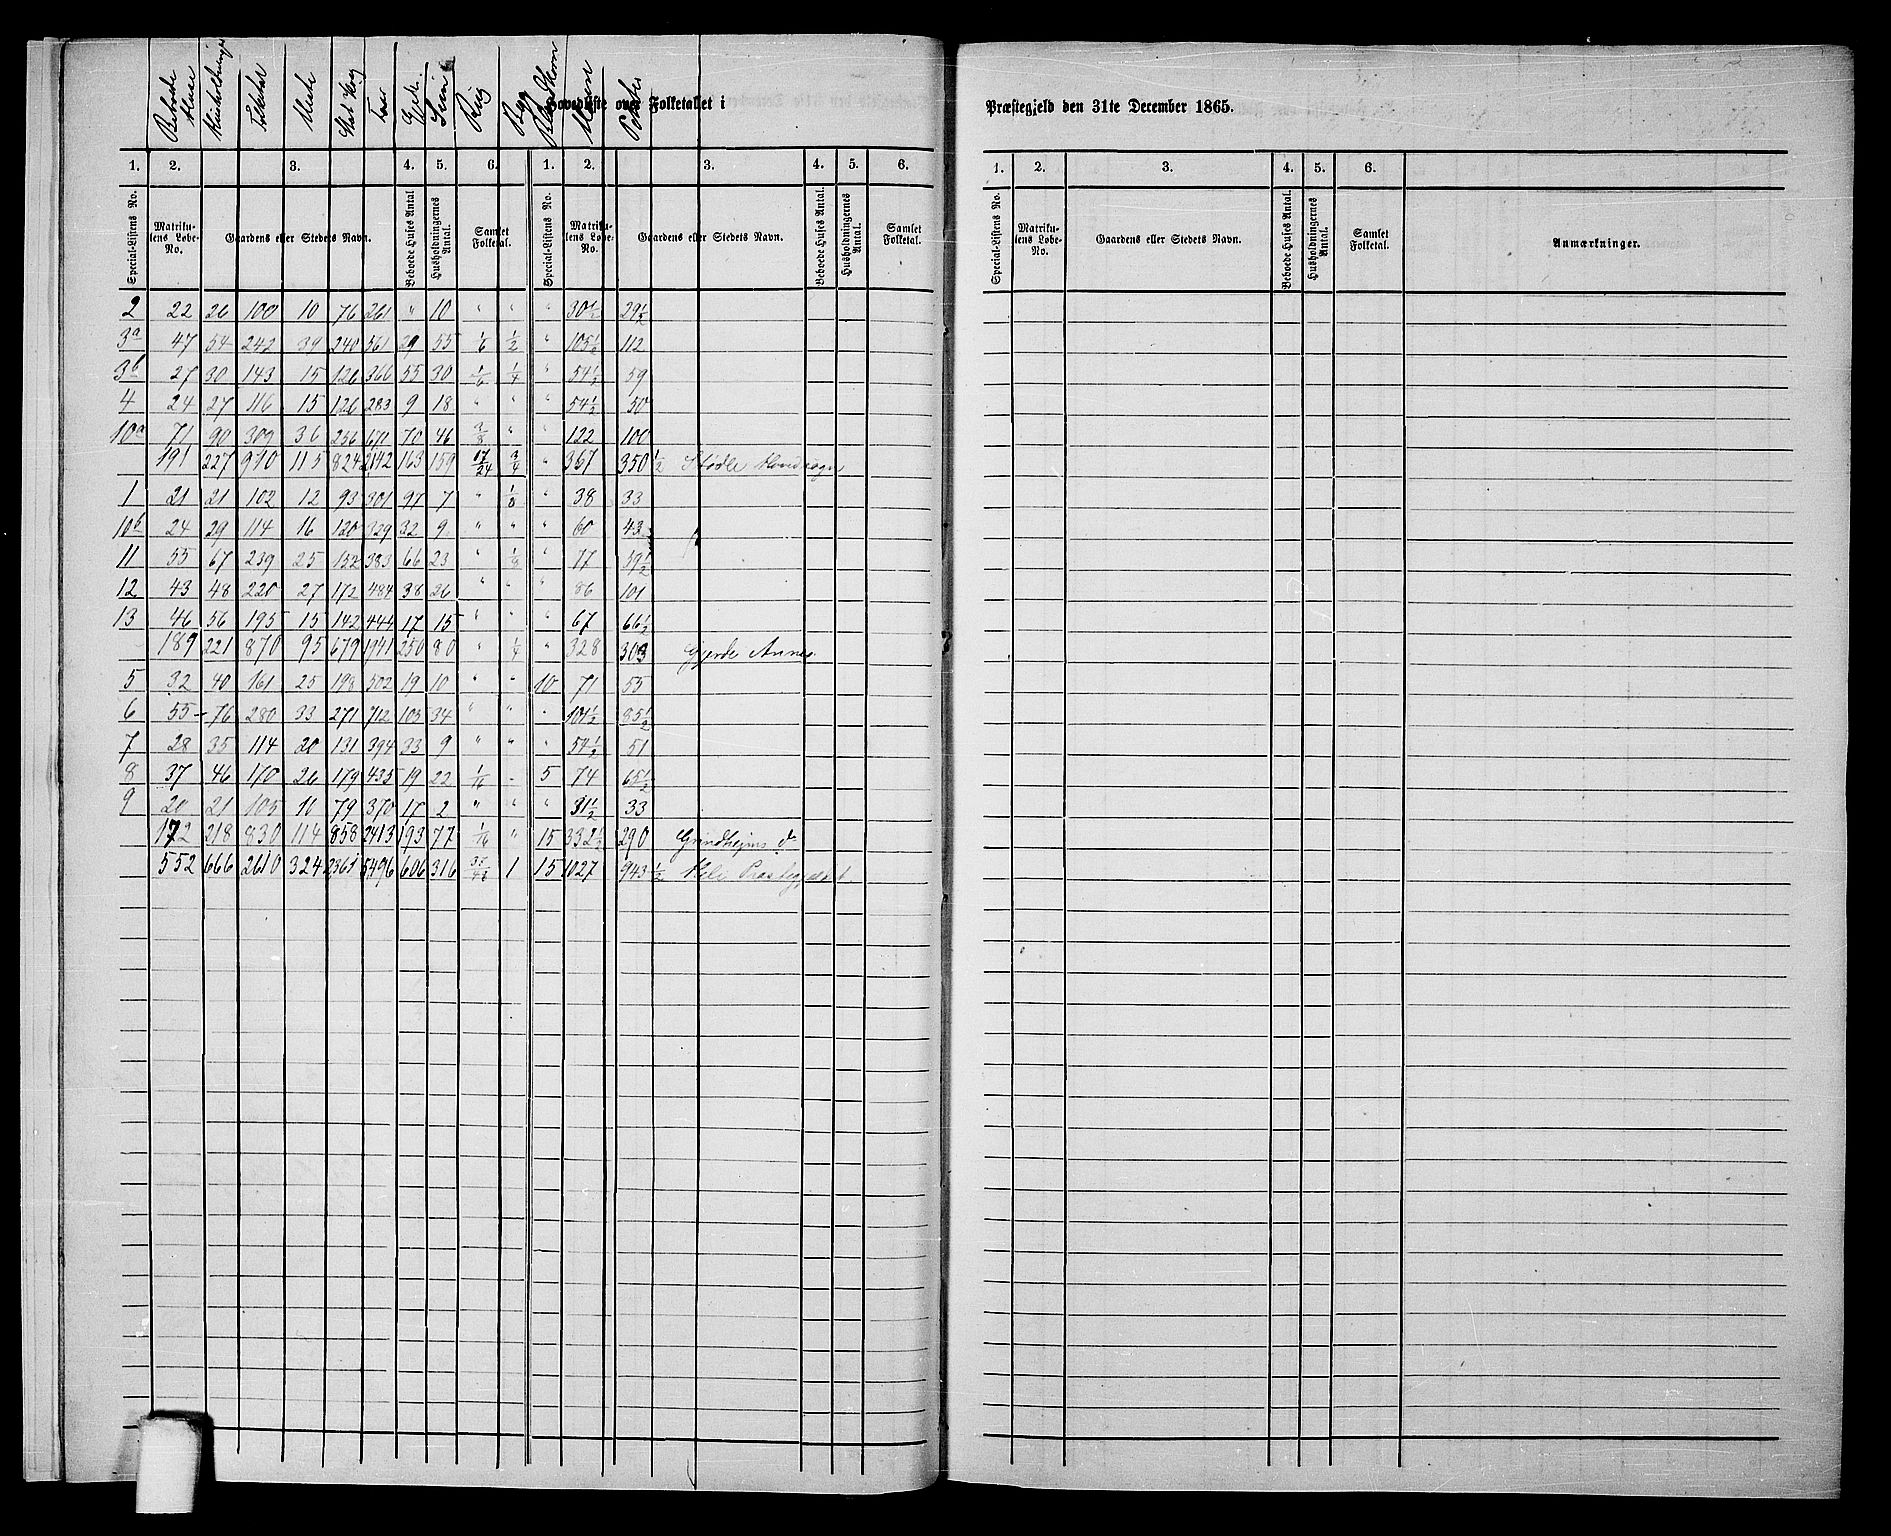 Beboede Huse Huusholdninger Folketal Heste Stort Kvæg Faar Gjeder Sviin Rug Byg Blandkorn Havre Poteter
Hovedliste over Folketallet i
Præstegjeld den 31te December 1865.
1. 2. 3. 4. 5. 6. 1. 2. 3. 4. 5. 6.
1. 2. 3. 4. 5. 6.
Special-Listens No. Matrikulens Løbe-No. Gaardens eller Stedets Navn. Beboede Huses Antal Husholdningernes Antal. Samlet Folketal. Special-Listens No. Matrikulens Løbe-No. Gaardens eller Stedets Navn. Beboede Huses Antal. Husholdningernes Antal. Samlet Folketal.
Special-Listens No. Matrikulens Løbe-No. Gaardens eller Stedets Navn. Beboede Huses Antal. Husholdningernes Antal. Samlet Folketal. Anmærkninger.
2 22 26 100 10 76 261 " 10 " " " 30½ 29½
3a 47 54 242 39 240 561 29 55 1/6 ½ " 105½ 112
3b 27 30 143 15 126 366 55 30 1/6 ¼ " 54½ 59
4 24 27 116 15 126 283 9 18 " " " 54½ 50
10a 71 90 309 36 256 671 70 46 3/8 " " 122 100
191 227 910 115 824 2142 163 159 17/24 ¾ " 367 350½ Stødle Hovedsogn
1 21 21 102 12 93 301 97 7 " 1/8 " 38 33
10b 24 29 114 16 120 329 32 9 " " " 60 43
11 55 67 239 25 152 383 66 23 " 1/8 " 77 59½
12 43 48 220 27 172 484 38 26 " " " 86 101
13 46 56 195 15 142 444 17 15 " " " 67 66½
189 221 870 95 679 1941 250 80 " ¼ " 328 303 Gjerde Annex
5 32 40 161 25 198 502 19 10 " " 10 71 55
6 55 76 280 33 271 712 105 34 " " " 101½ 85½
7 28 35 114 20 131 394 33 9 " " " 54½ 51
8 37 46 170 26 179 435 19 22 1/16 - 5 74 65½
9 20 21 105 10 79 370 17 2 " " " 31½ 33
172 218 830 114 858 2413 193 77 1/16 " 15 332½ 290 Grindheims do
552 666 2610 324 2361 5496 606 316 37/48 1 15 1027 943½ Hele Præstegjeldet